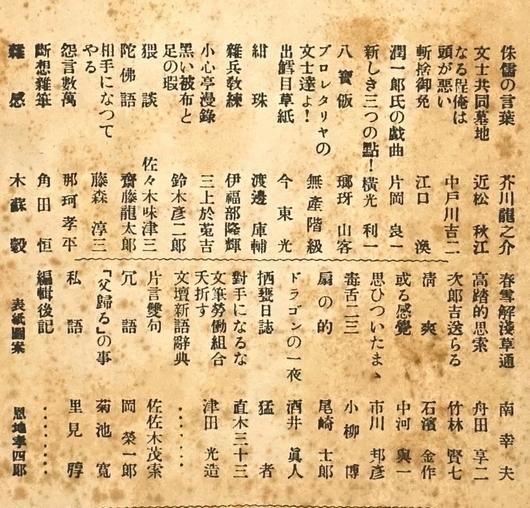 侏儒の言葉 芥川龍之介
文士共同墓地 近松秋江
なる程俺は頭が悪い 中戸川吉二
斬捨御免 江口渙
潤一郎氏の戯曲 片岡良一
新しき三つの點! 橫光利一
八寶飯 瑯玡山客
プロレタリヤの文士達よ! 無產階級
出鱈目草紙 今東光
紺珠 渡邊庫輔
雜兵敎練 伊福部隆輝
小心亭漫錄 三上於菟吉
黑い被布と足の瑕 鈴木彥二郎
猥談 佐々木味津三
陀佛語 齋藤龍太郎
相手になつてやる 藤森淳三
怨言數萬 那珂孝平
斷想雜筆 角田恒
雜感 木蘇穀
春雪解淺草通 南幸夫
高踏的思索 舟田享二
次郎吉送らる 竹林賢七
淸爽 石濱金作
或る感覺 中河與一
思ひついたまゝ 市川邦彥
毒舌二三 小柳博
扇の的 尾崎士郎
ドラゴンの一夜 酒井眞人
洒甕日誌 猛者
對手になるな 直木三十三
文筆勞働組合夭折す 津田光造
文壇新語辭典 ・・・・・・
片言雙句 佐佐木茂索
冗語 岡榮一郎
『父歸る』の事 菊池寬
私語 里見弴
編輯後記 ・・・・・・
表紙圖案 恩地孝四郎